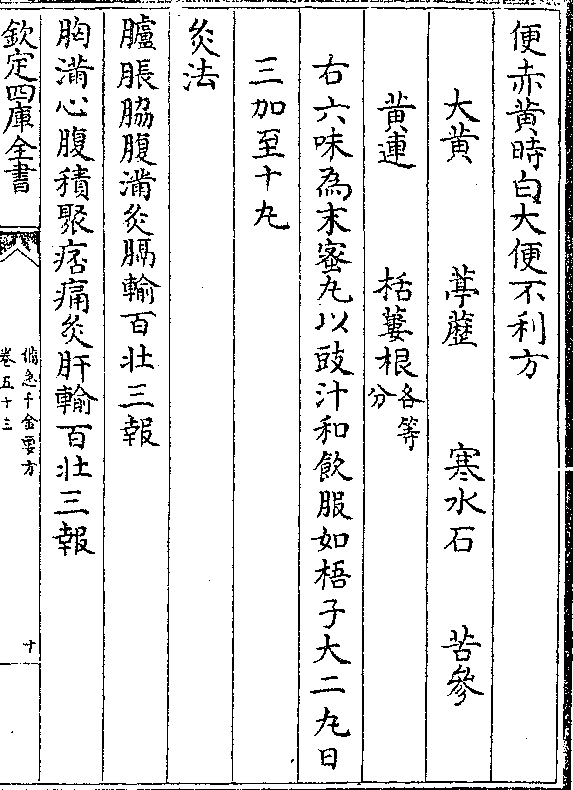 便赤黄時白大便不利方
大黄　葶藶　寒水石　苦參
黄連　栝蔞根各等分
右六味為末蜜丸以豉汁和飲服如梧子大二丸日
三加至十丸
灸法
臚脹脇腹滿灸膈輸百壯三報
胸滿心腹積聚痞痛灸肝輸百壯三報
欽定四庫全書
備急千金要方
卷五十三
十